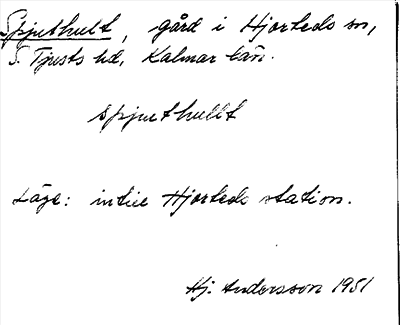 Spjuthult, gård i Hjorteds sn,
S. Tjusts hd, Kalmar län.
spjuthullt
Läge: intill Hjorteds station.
Hj. Andersson 1951